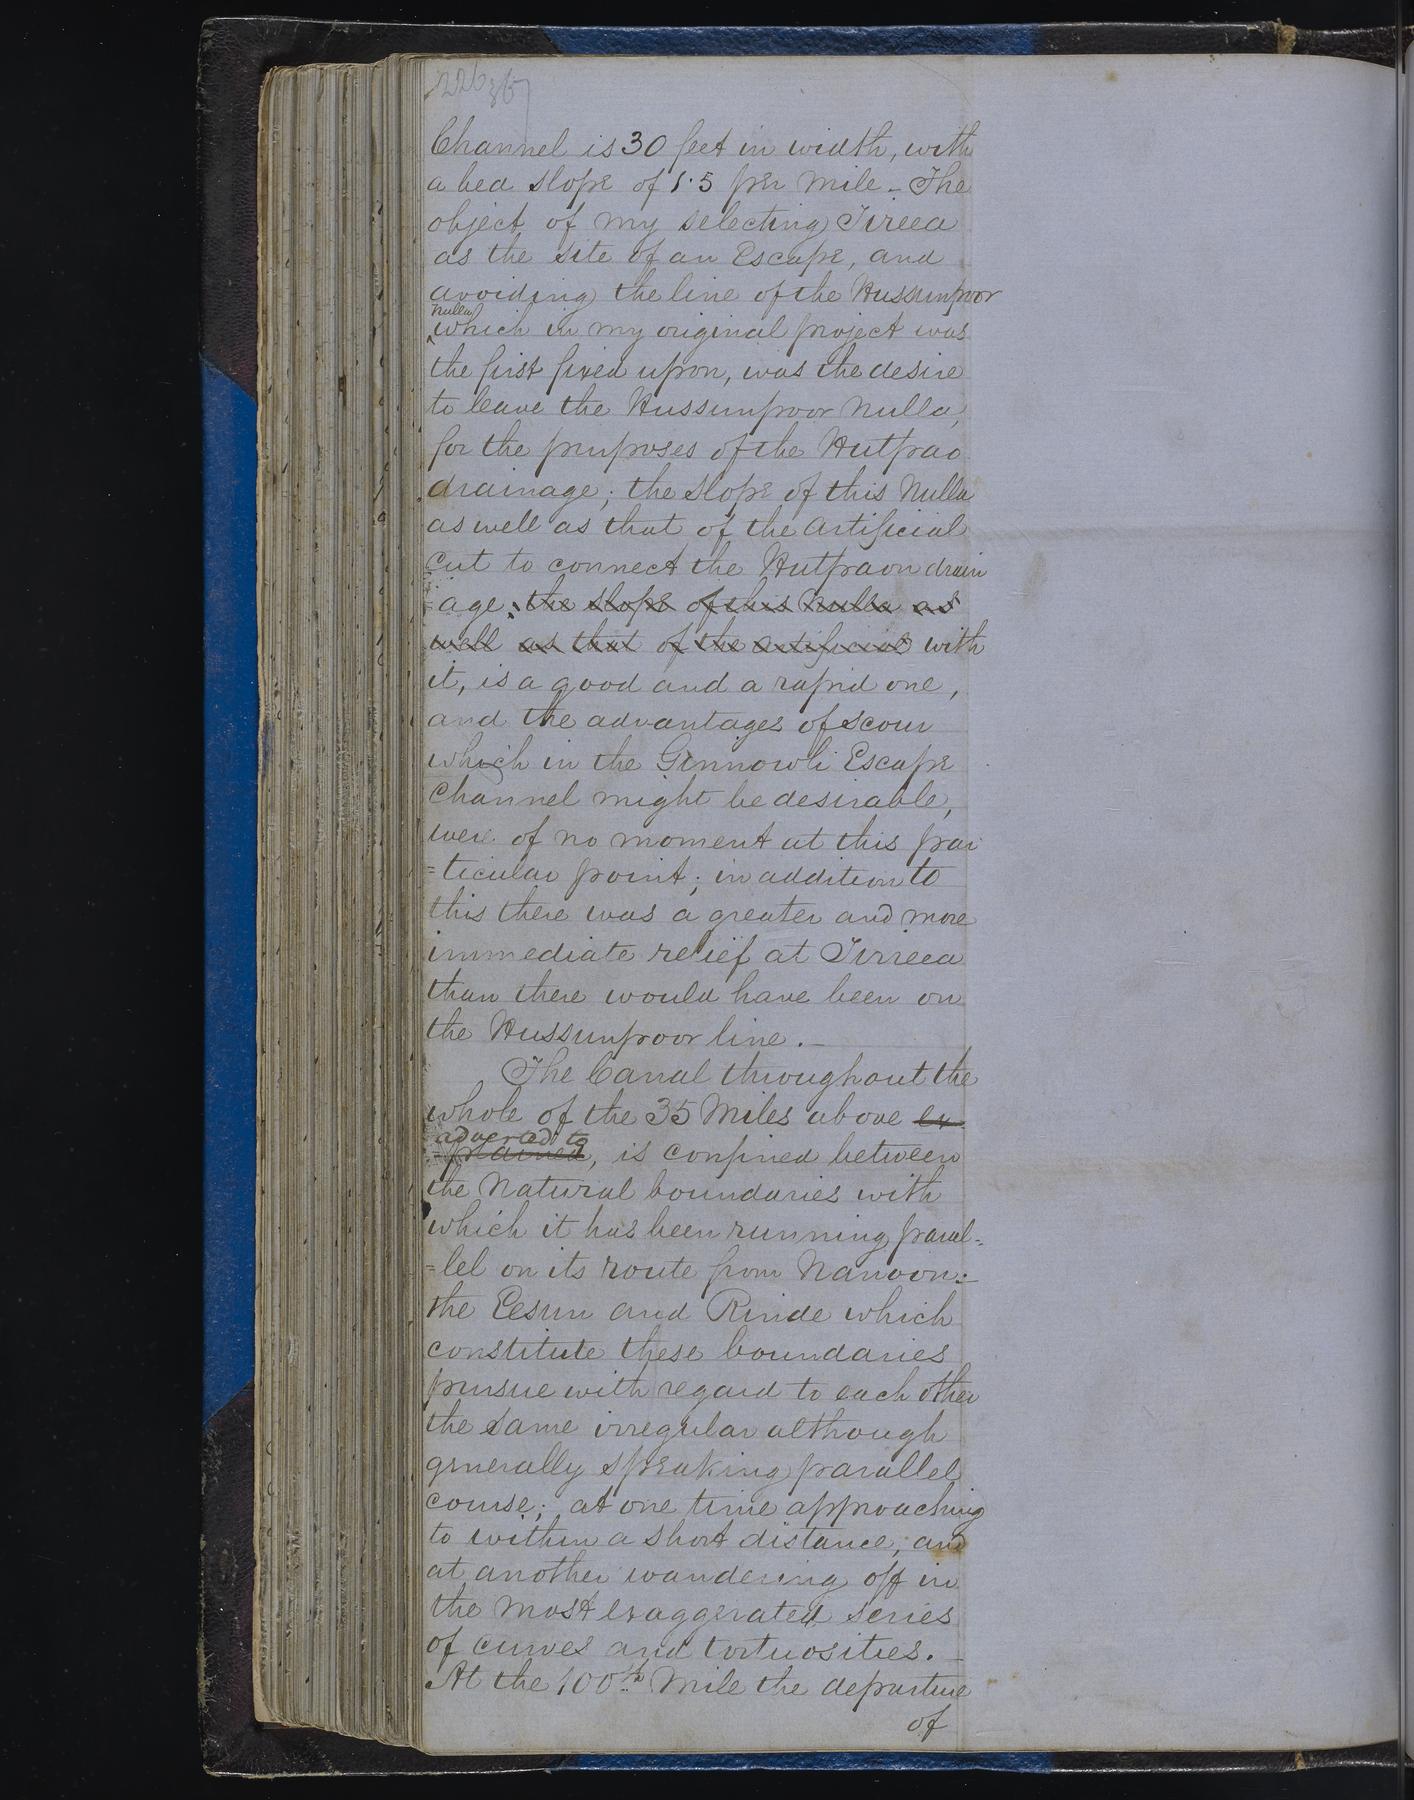 Channel is 30 feet in width, with
a bed slope of 1.5 per mile - The
object of my selecting Tireea
as the site of an Escape, and
avoiding the line of the Hussunpoor
nulla
which in my original project was
the first fixed upon, was the desire
to leave the Hussunpoor Nulla,
for the purposes of the Hutpao
drainage; the slope of this Nulla
as well as that of the artificial
cut to connect the Hutpraon drain
=age, the slope of this Nulla as
well as that of the artificial with
it, is a good and a rapid one,
and the advantages of scour
which in the Ginnowli Escape
Channel might be desirable,
were of no moment at this par
=ticular point; in addition to
this there was a greater and more
immediate relief at Tirreea
than there would have been on
the Hussunpoor line. -
The Canal throughout the
whole of the 35 Miles above ex
adverted to
=plained, is confined between
the Natural boundaries with
which it has been running paral=
=lel on its route from Nanoon:-
the Eesun and Rinde which
constitute these boundaries
pursue with regard to each other
the same irregular although
generally speaking parallel
course; at one time approaching
to within a short distance, and
at another wandering off in
the most exaggerated series
of curves and tortuosities. -
At the 100th Mile the departure
of